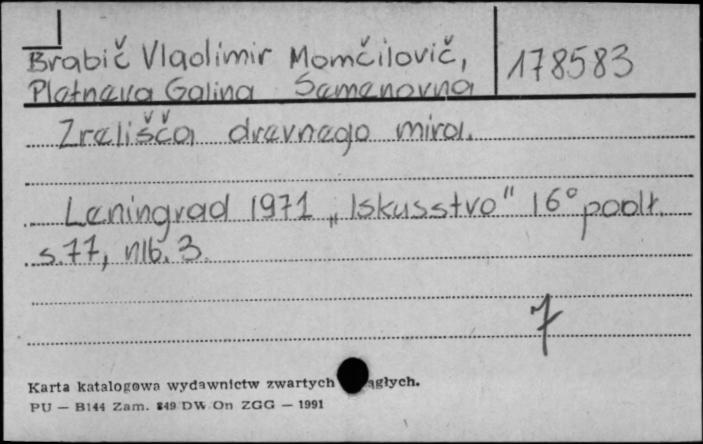 Brabič Vladimir Momčilovič,
Pletneva Galina Semenovna
178583
Zrelišča drevnego mira.
Leningrad 1971 „Iskusstvo" 16° podt.
s.77, nlb. 3.
7
Karta katalogowa wydawnictw zwartych ągłych.
PU — B144 Zam. 849 DW On ZGG — 1991